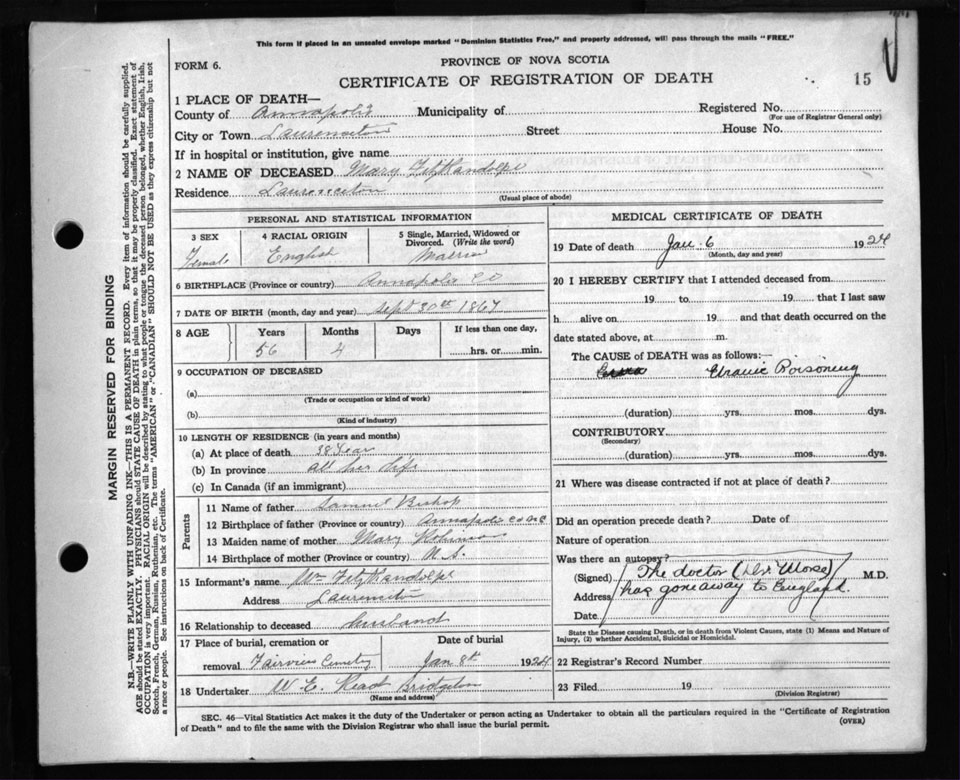 This form if placed in an unsealed envelope marked "Dominion Statistics Free," and properly addressed, will pass through the mails "FREE."
FORM 6.
PROVINCE OF NOVA SCOTIA
CERTIFICATE OF REGISTRATION OF DEATH
15
MARGIN RESERVED FOR BINDING
N.B.—WRITE PLAINLY WITH UNFADING INK—THIS IS A PERMANENT RECORD. Every item of information should be carefully supplied.
AGE should be stated EXACTLY. PHYSICIANS should STATE CAUSE OF DEATH in plain terms, so that it may be properly classified. Exact statement of
OCCUPATION is very important. RACIAL ORIGIN will be described by stating to what people or tongue the deceased person belonged, whether English, Irish,
Scotch, French, German, Russian, Ruthenian, etc. The terms "AMERICAN" or "CANADIAN" SHOULD NOT BE USED as they express citizenship but not
a race or people. See instructions on back of Certificate.
1 PLACE OF DEATH—
County of Annapolis Municipality of Registered No.
(For use of Registrar General only)
City or Town Street House No.
If in hospital or institution, give name
2 NAME OF DECEASED Mary FitzRandolph
Residence
(Usual place of abode)
PERSONAL AND STATISTICAL INFORMATION
3 SEX
Female
4 RACIAL ORIGIN
English
5 Single, Married, Widowed or
Divorced. (Write the word)
Married
6 BIRTHPLACE (Province or country) Annapolis Co
7 DATE OF BIRTH (month, day and year) Sept 30th 1867
8 AGE
Years Months Days If less than one day,
56 4 hrs. or min.
9 OCCUPATION OF DECEASED
(a)
(Trade or occupation or kind of work)
(b)
(Kind of industry)
10 LENGTH OF RESIDENCE (in years and months)
(a) At place of death 38 Year
(b) In province all her life
(c) In Canada (if an immigrant)
Parents
11 Name of father Samuel Bishop
12 Birthplace of father (Province or country) Annapolis Co
13 Maiden name of mother Mary
14 Birthplace of mother (Province or country) N.S.
15 Informant's name Wm FitzRandolph
Address
16 Relationship to deceased husband
17 Place of burial, cremation or Date of burial
removal Fairview Cemetry Jan 8th 1924
18 Undertaker W E Read
(Name and address)
MEDICAL CERTIFICATE OF DEATH
19 Date of death Jan. 6 1924
(Month, day and year)
20 I HEREBY CERTIFY that I attended deceased from
19 to 19 that I last saw
h alive on 19 and that death occurred on the
date stated above, at m.
The CAUSE of DEATH was as follows:—
Uramic Poisoning
(duration) yrs. mos. dys.
CONTRIBUTORY
(Secondary)
(duration) yrs. mos. dys.
21 Where was disease contracted if not at place of death?
Did an operation precede death? Date of
Nature of operation
Was there an autopsy?
(Signed) The doctor (Dr. Morse) M.D.
Address has gone away to England.
Date
State the Disease causing Death, or in death from Violent Causes, state (1) Means and Nature of
Injury, (2) whether Accidental, Suicidal or Homicidal.
22 Registrar's Record Number
23 Filed 19
(Division Registrar)
SEC. 46—Vital Statistics Act makes it the duty of the Undertaker or person acting as Undertaker to obtain all the particulars required in the "Certificate of Registration
of Death" and to file the same with the Division Registrar who shall issue the burial permit. (OVER)